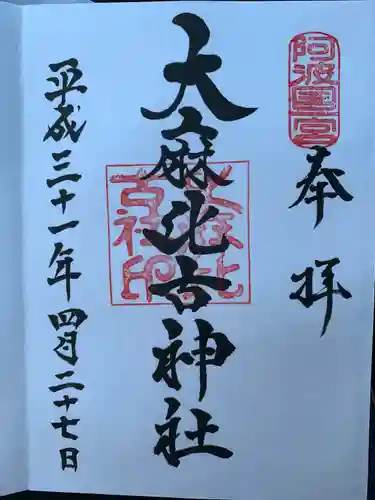 阿波一宮
奉拝
大麻比古神社
大麻比古社印
平成三十一年四月二十七日